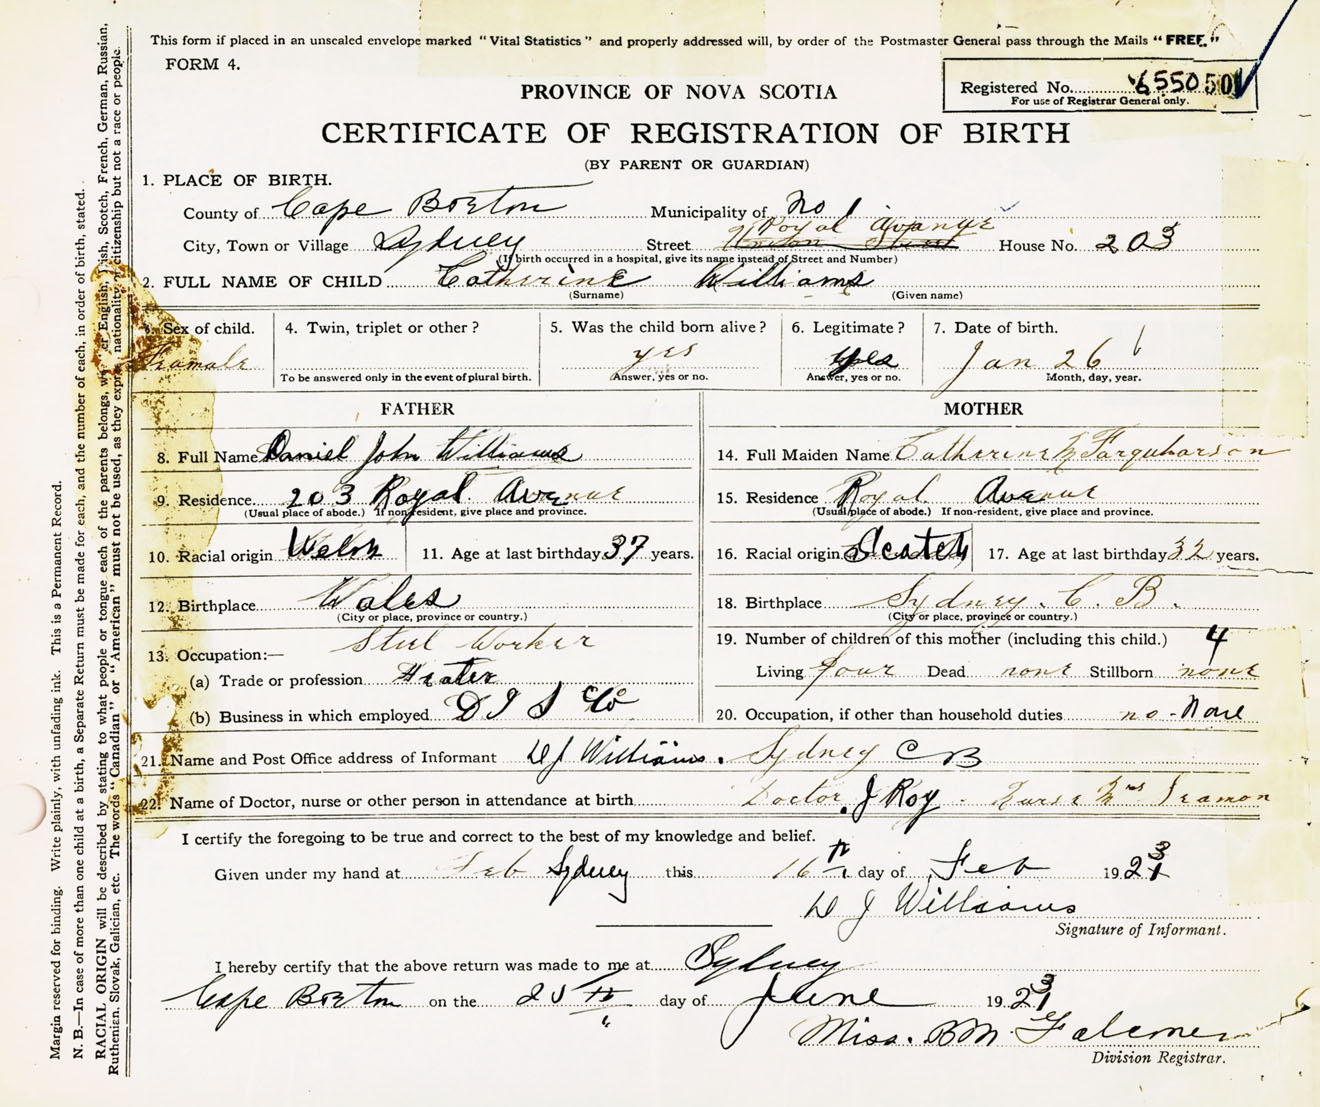 This form if placed in an unscaled envelope marked "Vital Statistics" and properly addressed will, by order of the Postmaster General pass through the Mails "FREE."
FORM 4.
Registered No. 6550 50
For use of Registrar General only.
PROVINCE OF NOVA SCOTIA
CERTIFICATE OF REGISTRATION OF BIRTH
(BY PARENT OR GUARDIAN)
1. PLACE OF BIRTH.
County of Cape Breton Municipality of No 1
Royal Avenue
City, Town or Village Sydney Street House No. 203
(If birth occurred in a hospital, give its name instead of Street and Number)
2. FULL NAME OF CHILD Catherine Williams
(Surname) (Given name)
3. Sex of child. 4. Twin, triplet or other? 5. Was the child born alive? 6. Legitimate? 7. Date of birth.
Female yes yes Jan 26
To be answered only in the event of plural birth. Answer, yes or no. Answer, yes or no. Month, day, year.
FATHER MOTHER
8. Full Name Daniel John Williams 14. Full Maiden Name Catherine M Farquharson
9. Residence 203 Royal Avenue 15. Residence Royal Avenue
(Usual place of abode.) If non-resident, give place and province. (Usual place of abode.) If non-resident, give place and province.
10. Racial origin Welsh 11. Age at last birthday 37 years. 16. Racial origin Scotch 17. Age at last birthday 32 years.
12. Birthplace Wales 18. Birthplace Sydney. C. B.
(City or place, province or country.) (City or place, province or country.)
13. Occupation:— Steel Worker 19. Number of children of this mother (including this child.) 4
(a) Trade or profession Heater Living four Dead none Stillborn none
(b) Business in which employed D I S Co 20. Occupation, if other than household duties no - None
21. Name and Post Office address of Informant D J Williams. Sydney C B
22. Name of Doctor, nurse or other person in attendance at birth Doctor. J Roy. Nurse Mrs
I certify the foregoing to be true and correct to the best of my knowledge and belief.
Given under my hand at Feb Sydney this 16th day of Feb 1923
D J Williams
Signature of Informant.
I hereby certify that the above return was made to me at Sydney
Cape Breton on the 25th day of June 1923
Miss. B M. Falconer
Division Registrar.
Margin reserved for binding. Write plainly, with unfading ink. This is a Permanent Record.
N. B.—In case of more than one child at a birth, a Separate Return must be made for each, and the number of each, in order of birth, stated.
RACIAL ORIGIN will be described by stating to what people or tongue each of the parents belongs, English, Irish, Scotch, French, German, Russian,
Ruthenien, Slovak, Galician, etc. The words "Canadian" or "American" must not be used, as they express nationality or citizenship but not a race or people.